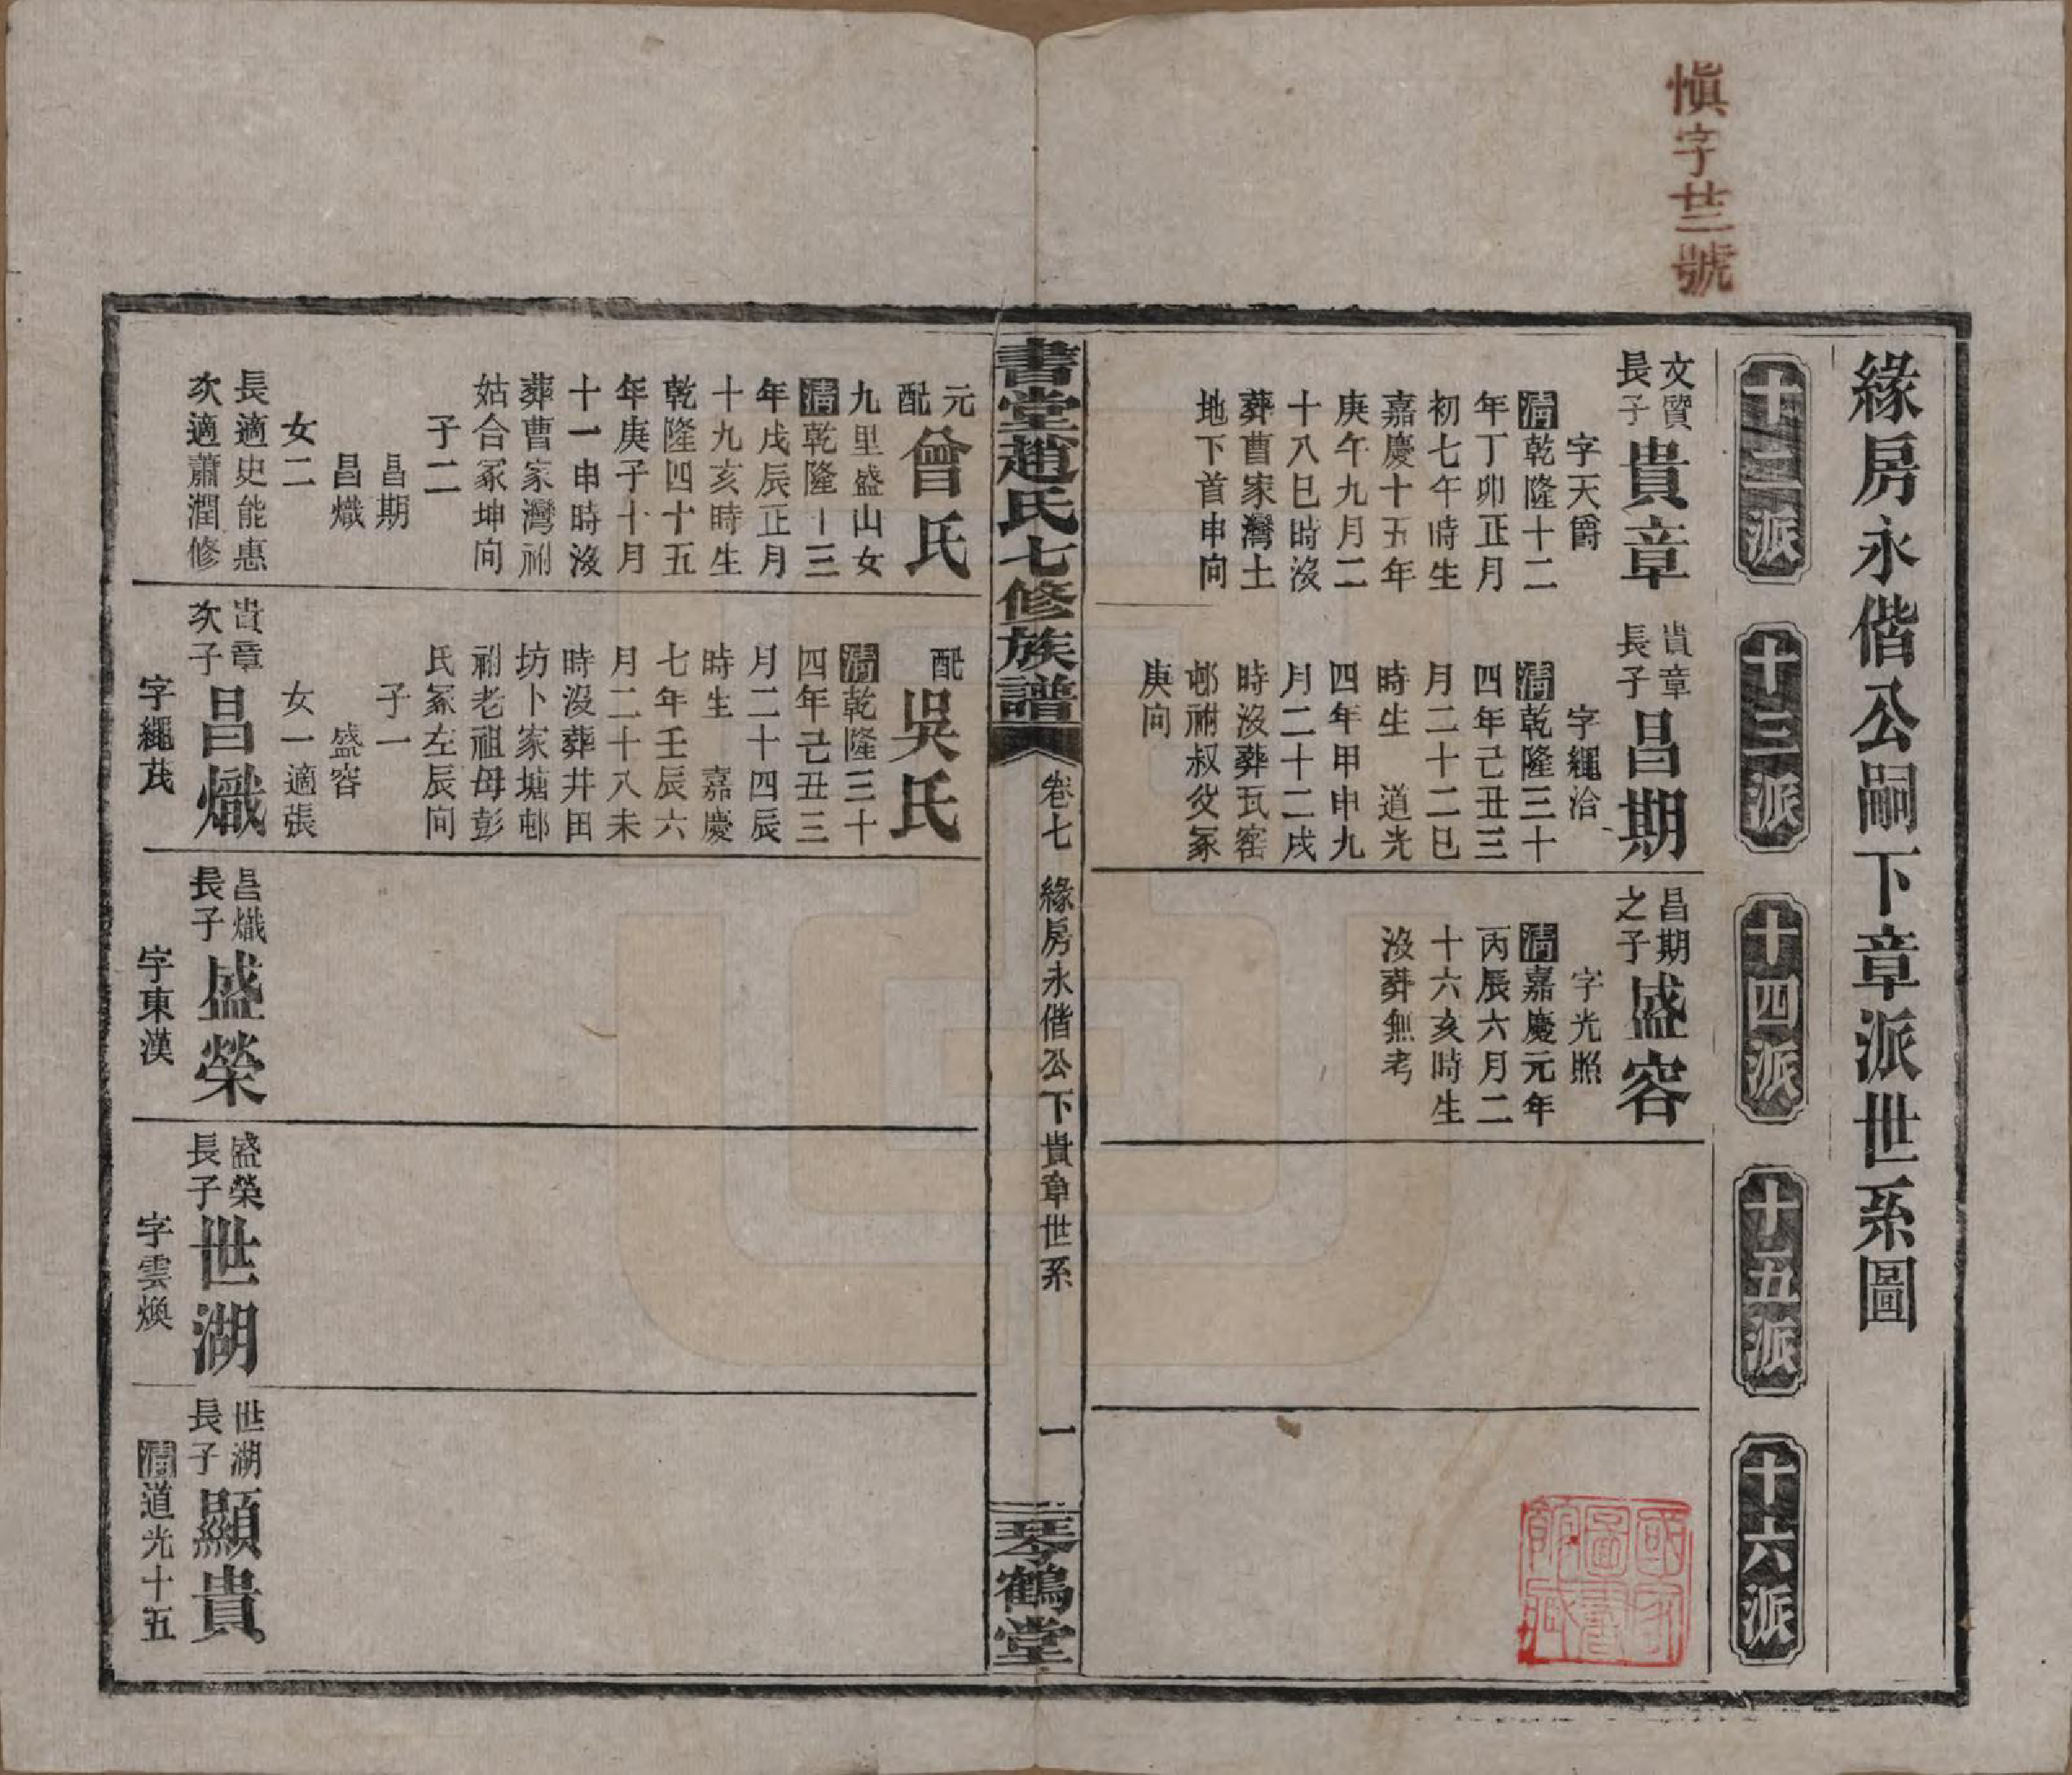 慎字廿三號
緣房永偕公嗣下章派世系圖
十二派
十三派
十四派
十五派
十六派
文質
長子
貴章
字天爵
清乾隆十二
年丁卯正月
初七午時生
嘉慶十五年
庚午九月二
十八巳時沒
葬曹家灣土
地下首申向
貴章
長子
昌期
字繩洽
清乾隆三十
四年己丑三
月二十二巳
時生　道光
四年甲申九
月二十二戌
時沒葬瓦窰
邨祔叔父冢
庚向
昌期
之子
盛容
字光照
清嘉慶元年
丙辰六月二
十六亥時生
沒葬無考
國家圖書館藏
書堂趙氏七修族譜
卷七
緣房永偕公下貴章世系
一
琴鶴堂
元
配
曾氏
九里盛山女
清乾隆十三
年戊辰正月
十九亥時生
乾隆四十五
年庚子十月
十一申時沒
葬曹家灣祔
姑合冢坤向
子二
昌期
昌熾
女二
長適史能惠
次適蕭潤修
配
吳氏
清乾隆三十
四年己丑三
月二十四辰
時生　嘉慶
七年壬辰六
月二十八未
時沒葬井田
坊卜家塘邨
祔老祖母彭
氏冢左辰向
子一
盛容
女一適張
貴章
次子
昌熾
字繩茂
昌熾
長子
盛榮
字東漢
盛榮
長子
世湖
字雲煥
世湖
長子
顯貴
清道光十五